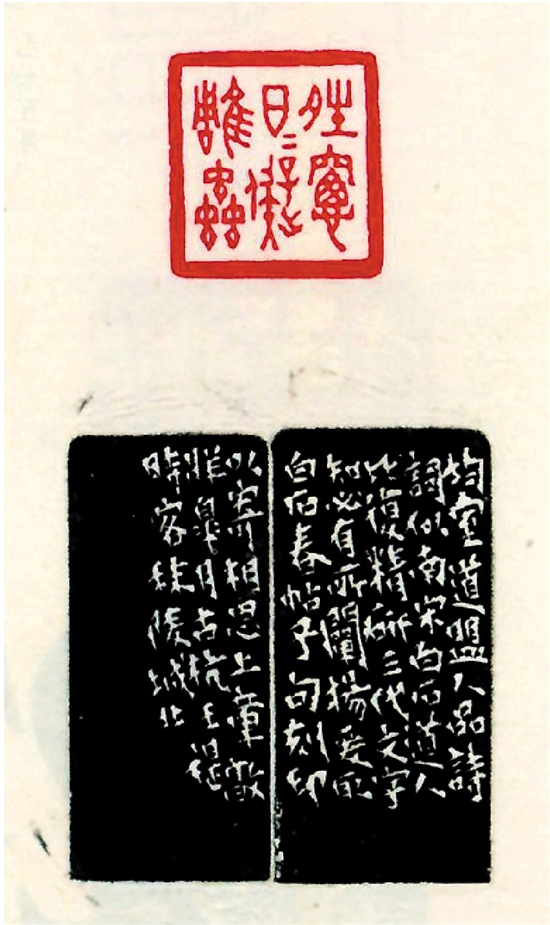 夝窗
日二擬
雕蟲
均室道盟人品詩
詞似南宋白石道人
比復精研三代文字
知必有所闡揚爰取
白石春帖子句刻印
以寄相思上章敦
牂皋月古杭王禔
時客秣陵城北